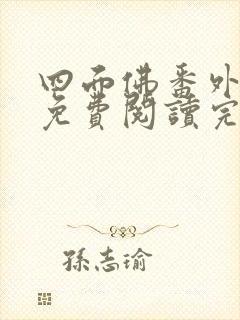 四面佛番外
免費閱讀完
孫志瑜